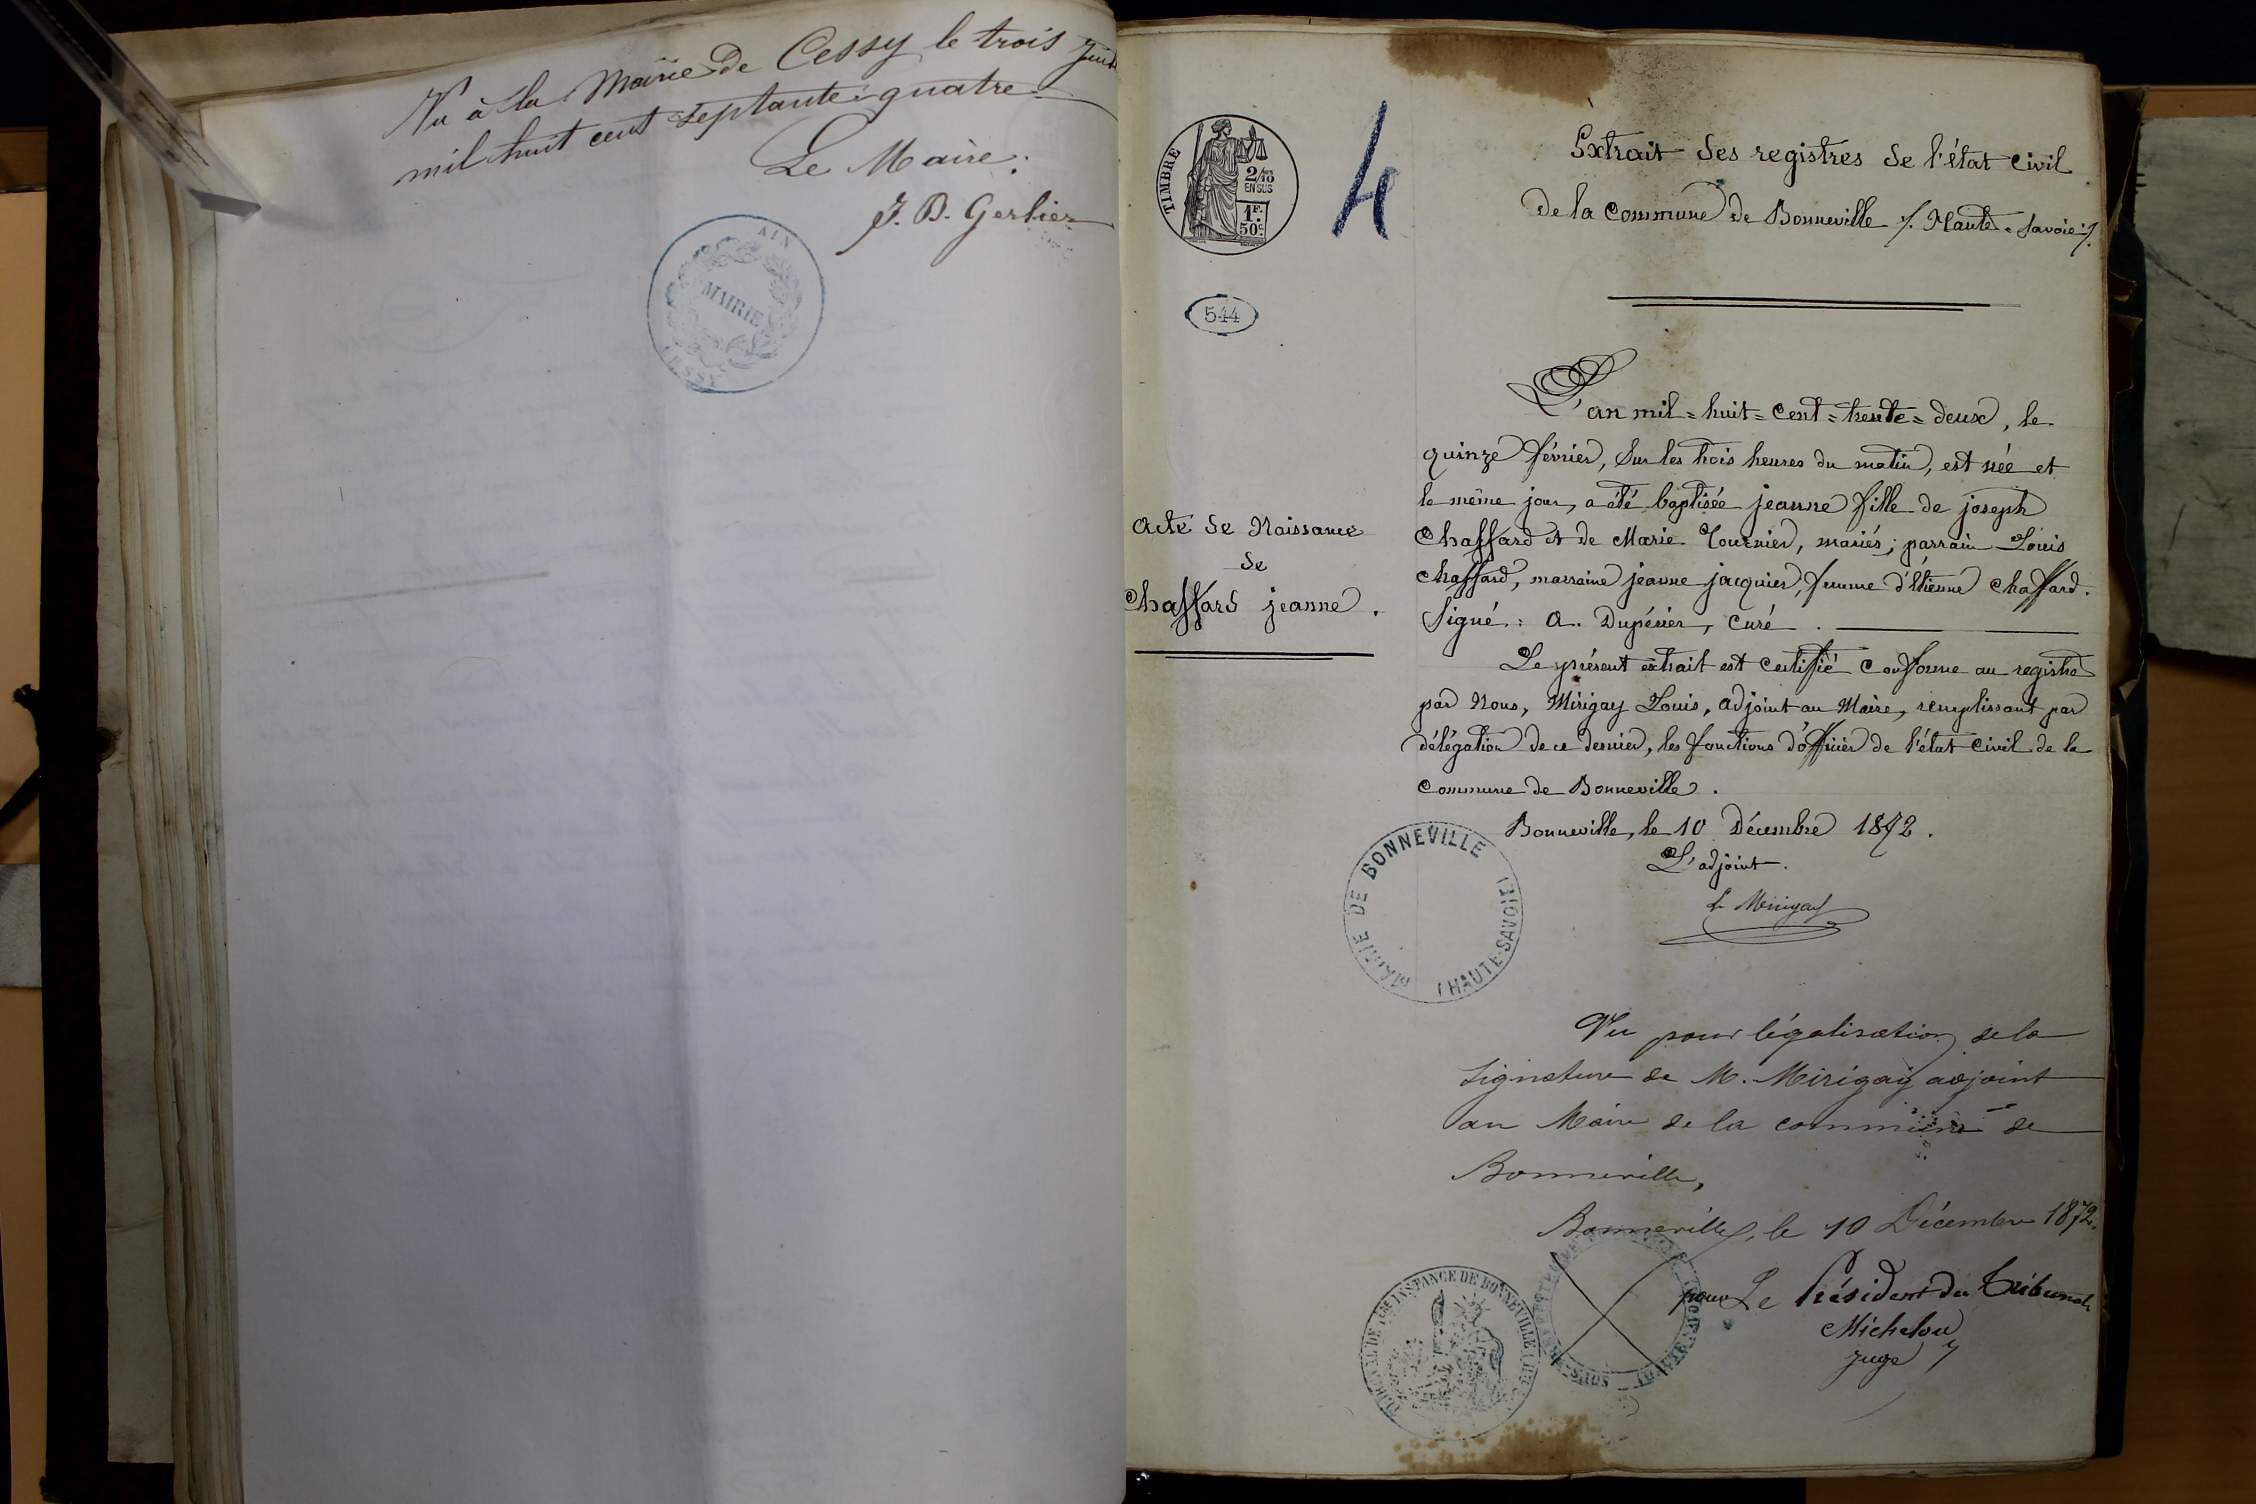 Vu à la Mairie de Cessy le trois
mil huit cent septante quatre
Le Maire:
J. B. Gerlier
AIN
MAIRIE
CESSY
TIMBRE
2/10
EN SUS
1F.
50c.
4
544
Extrait des registres de l'état civil
de la commune de Bonneville /. Haute-Savoie ./
Acte de Naissance
de
Chaffard jeanne.
L'an mil=huit=cent=trente=deux, le
quinze février, sur les trois heures du matin, est née et
le même jour, a été baptisée jeanne fille de joseph
Chaffard et de Marie Tournier, mariés; parrain Louis
Chaffard, marraine jeanne jacquier, femme d'étienne Chaffard.
Signé: A. Dupérier, curé.
Le présent extrait est certifié conforme au registre
par Nous, Mirigay Louis, adjoint au Maire, remplissant par
délégation de ce dernier, les fonctions d'officier de l'état civil de la
commune de Bonneville.
Bonneville, le 10 Décembre 1872.
L'adjoint.
L Mirigay
MAIRIE DE BONNEVILLE
(HAUTE-SAVOIE)
Vu pour légalisation de la
signature de M. Mirigay adjoint
au Maire de la commune de
Bonneville,
Bonneville, le 10 Décembre 1872.
pour Le Président du Tribunal
Michelou
juge
TRIBUNAL DE 1ERE INSTANCE DE BONNEVILLE